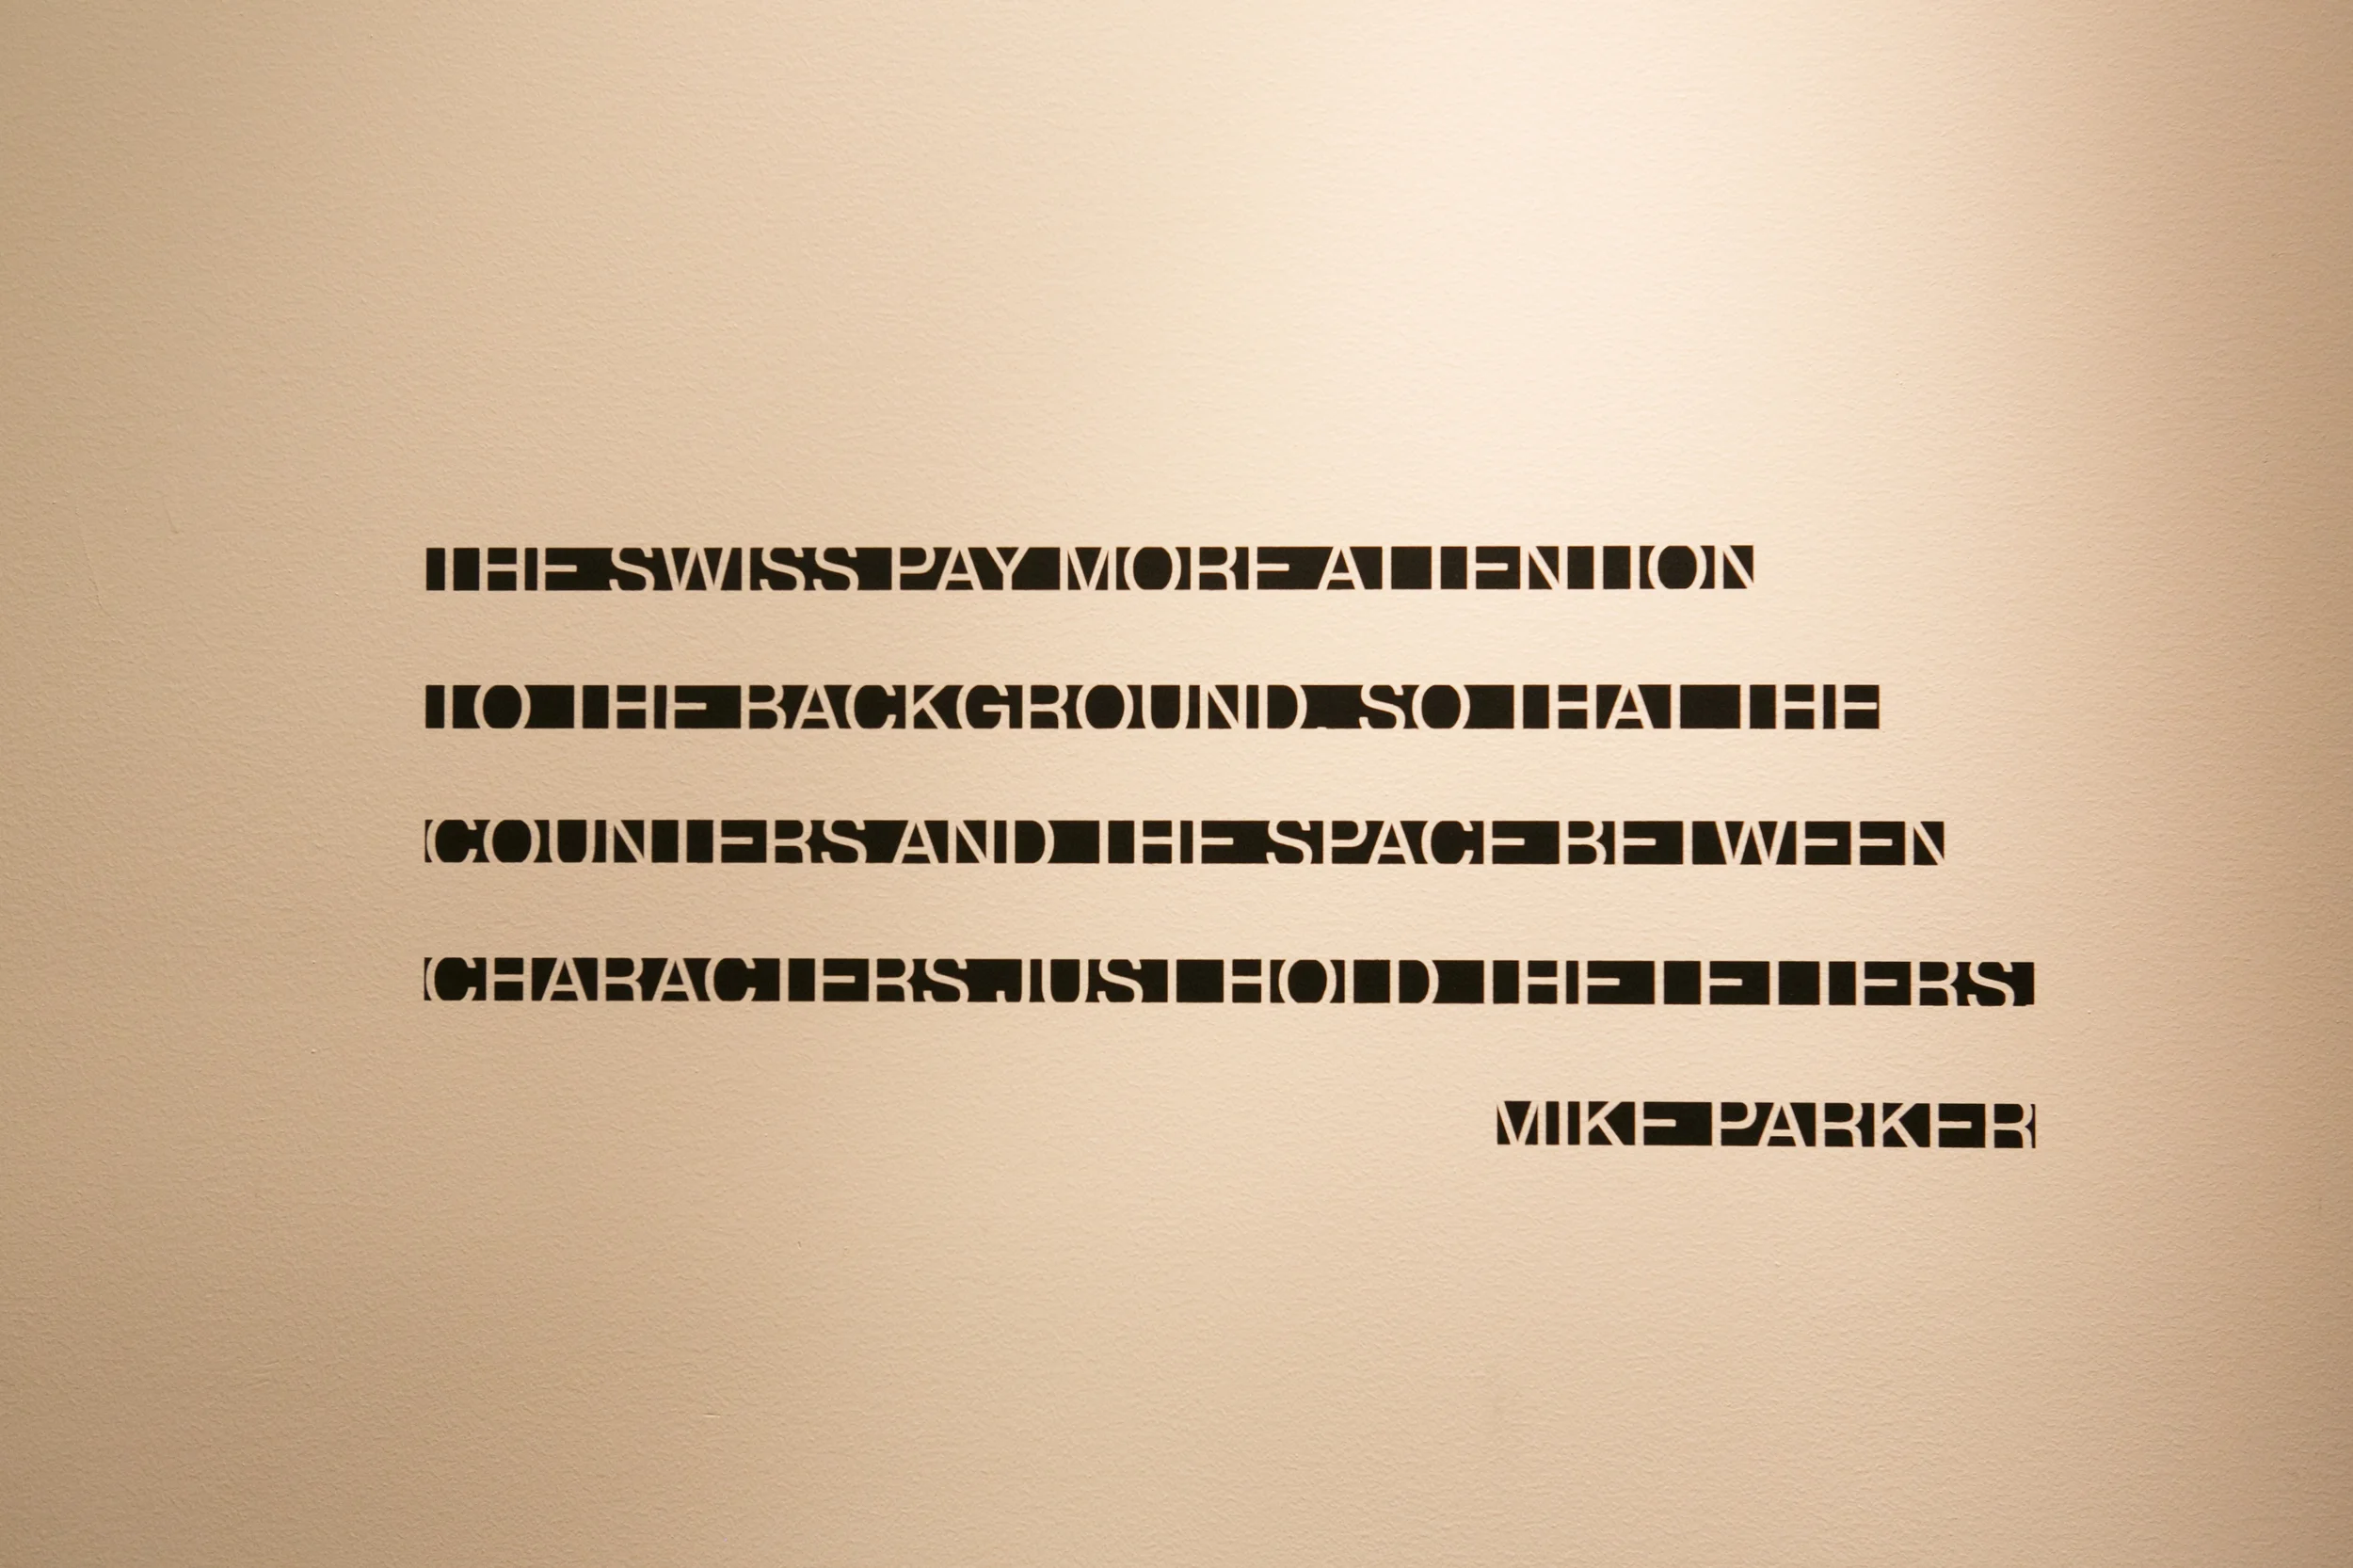 THE SWISS PAY MORE ATTENTION
TO THE BACKGROUND, SO THAT THE
COUNTERS AND THE SPACE BETWEEN
CHARACTERS JUST HOLD THE LETTERS.
MIKE PARKER